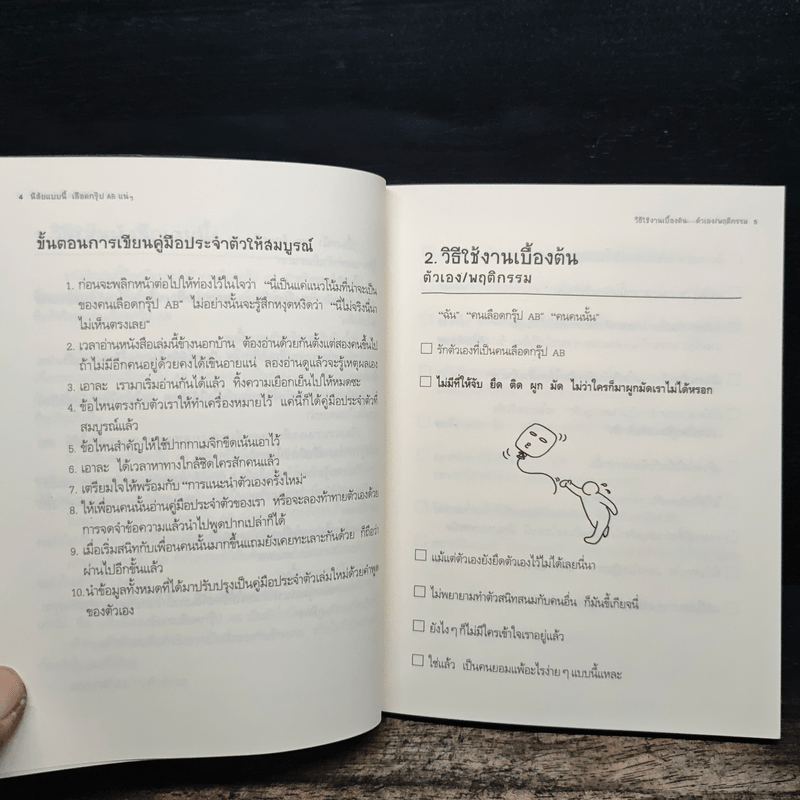 4 นิสัยแบบนี้ เลือดกรุ๊ป AB แน่ๆ
ขั้นตอนการเขียนคู่มือประจำตัวให้สมบูรณ์
1. ก่อนจะพลิกหน้าต่อไปให้ท่องไว้ในใจว่า “นี่เป็นแค่แนวโน้มที่น่าจะเป็น
ของคนเลือดกรุ๊ป AB” ไม่อย่างนั้นจะรู้สึกหงุดหงิดว่า “นี่ไม่จริงนี่นา
ไม่เห็นตรงเลย”
2. เวลาอ่านหนังสือเล่มนี้ข้างนอกบ้าน ต้องอ่านด้วยกันตั้งแต่สองคนขึ้นไป
ถ้าไม่มีอีกคนอยู่ด้วยคงได้เขินอายแน่ ลองอ่านดูแล้วจะรู้เหตุผลเอง
3. เอาละ เรามาเริ่มอ่านกันได้แล้ว ทิ้งความเยือกเย็นไปให้หมดซะ
4. ข้อไหนตรงกับตัวเราให้ทำเครื่องหมายไว้ แค่นี้ก็ได้คู่มือประจำตัวที่
สมบูรณ์แล้ว
5. ข้อไหนสำคัญให้ใช้ปากกาเมจิกขีดเน้นเอาไว้
6. เอาละ ได้เวลาหาทางใกล้ชิดใครสักคนแล้ว
7. เตรียมใจให้พร้อมกับ “การแนะนำตัวเองครั้งใหม่”
8. ให้เพื่อนคนนั้นอ่านคู่มือประจำตัวของเรา หรือจะลองท้าทายตัวเองด้วย
การจดจำข้อความแล้วนำไปพูดปากเปล่าก็ได้
9. เมื่อเริ่มสนิทกับเพื่อนคนนั้นมากขึ้นแถมยังเคยทะเลาะกันด้วย ก็ถือว่า
ผ่านไปอีกขั้นแล้ว
10. นำข้อมูลทั้งหมดที่ได้มาปรับปรุงเป็นคู่มือประจำตัวเล่มใหม่ด้วยคำพูด
ของตัวเอง
วิธีใช้งานเบื้องต้น—ตัวเอง/พฤติกรรม 5
2. วิธีใช้งานเบื้องต้น
ตัวเอง/พฤติกรรม
“ฉัน” “คนเลือดกรุ๊ป AB” “คนคนนั้น”
รักตัวเองที่เป็นคนเลือดกรุ๊ป AB
ไม่มีที่ให้จับ ยึด ติด ผูก มัด ไม่ว่าใครก็มาผูกมัดเราไม่ได้หรอก
แม้แต่ตัวเองยังยึดตัวเองไว้ไม่ได้เลยนี่นา
ไม่พยายามทำตัวสนิทสนมกับคนอื่น ก็มันขี้เกียจนี่
ยังไงๆ ก็ไม่มีใครเข้าใจเราอยู่แล้ว
ใช่แล้ว เป็นคนยอมแพ้อะไรง่ายๆ แบบนี้แหละ